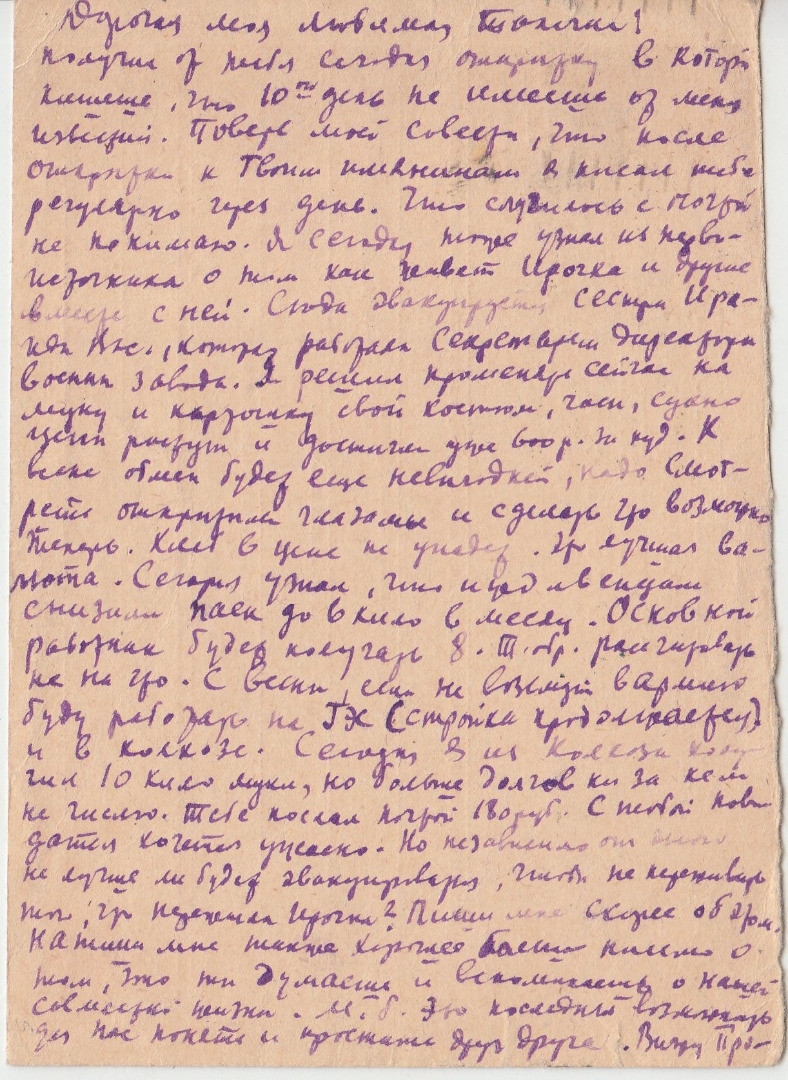 Дорогая моя любимая Танечка!
получил от тебя сегодня открытку в которой
пишешь, что 10ый день не имеешь от меня
известий. Поверь моей совести, что после
открытки к Твоим имянинам я писал тебе
регулярно через день. Что случилось с почтой
не понимаю. Я сегодня тоже узнал из перво-
источника о том как живет Ирочка и другие
вместе с ней. Сюда эвакуируется сестра Ира-
иды Вас., которая работала секретарем директора
военн завода. Я решил променять сейчас на
муку и картошку свой костюм, часы,
цены растут и достигли уже 600 р. за пуд. К
весне обмен будет еще невыгодней, надо смот-
реть открытыми глазами и сделать что возможно
теперь. Хлеб в цене не упадет. Это лучшая ва-
люта. Сегодня узнал, что иждивенцам
снизили паек до 6 кило в месяц. Основной
работник будет получать 8. Т. обр. рассчитывать
не на что. С весны, если не возьмут в армию
буду работать на ГЖ (стройка продолжается)
и в колхозе. Сегодня я из колхоза полу-
чил 10 кило муки, но больше долгов ни за кем
не числю. Тебе послал почтой 180 руб. С тобой пови-
даться хочется ужасно. Но независимо от этого
не лучше ли будет эвакуироваться, чтобы не переживать
того, что пережила Ирочка? Пиши мне скорее об этом.
Напиши мне также хорошее большое письмо о
том, что ты думаешь и вспоминаешь о нашей
совместной жизни. М.б. это последняя возможность
для нас понять и простить друг друга.